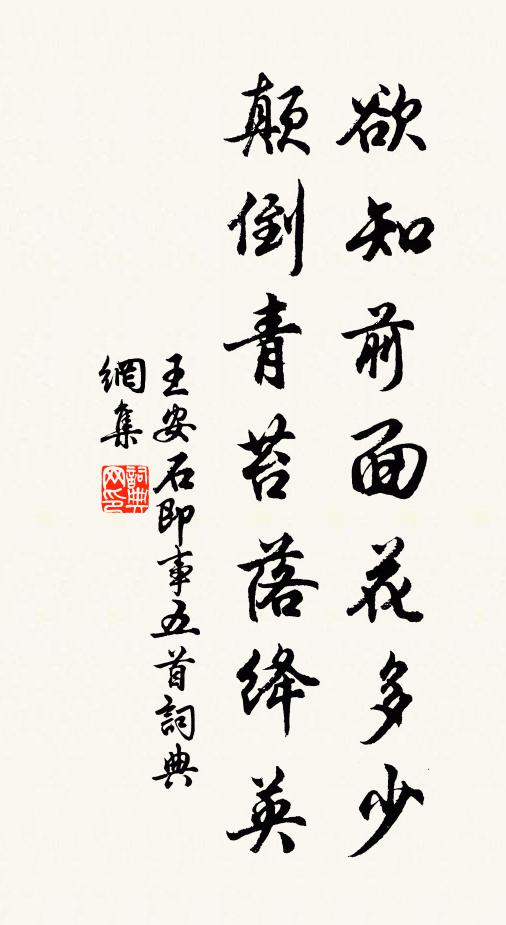 欲知前面花多少
顛倒青苔落絳英
王安石即事五首詞典
網集
詞典
网印